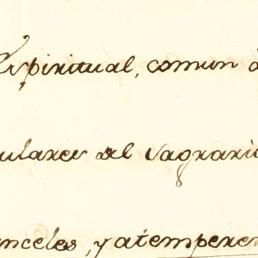 Espiritual, comun a
ulares del sagrari
nceles, y atempere